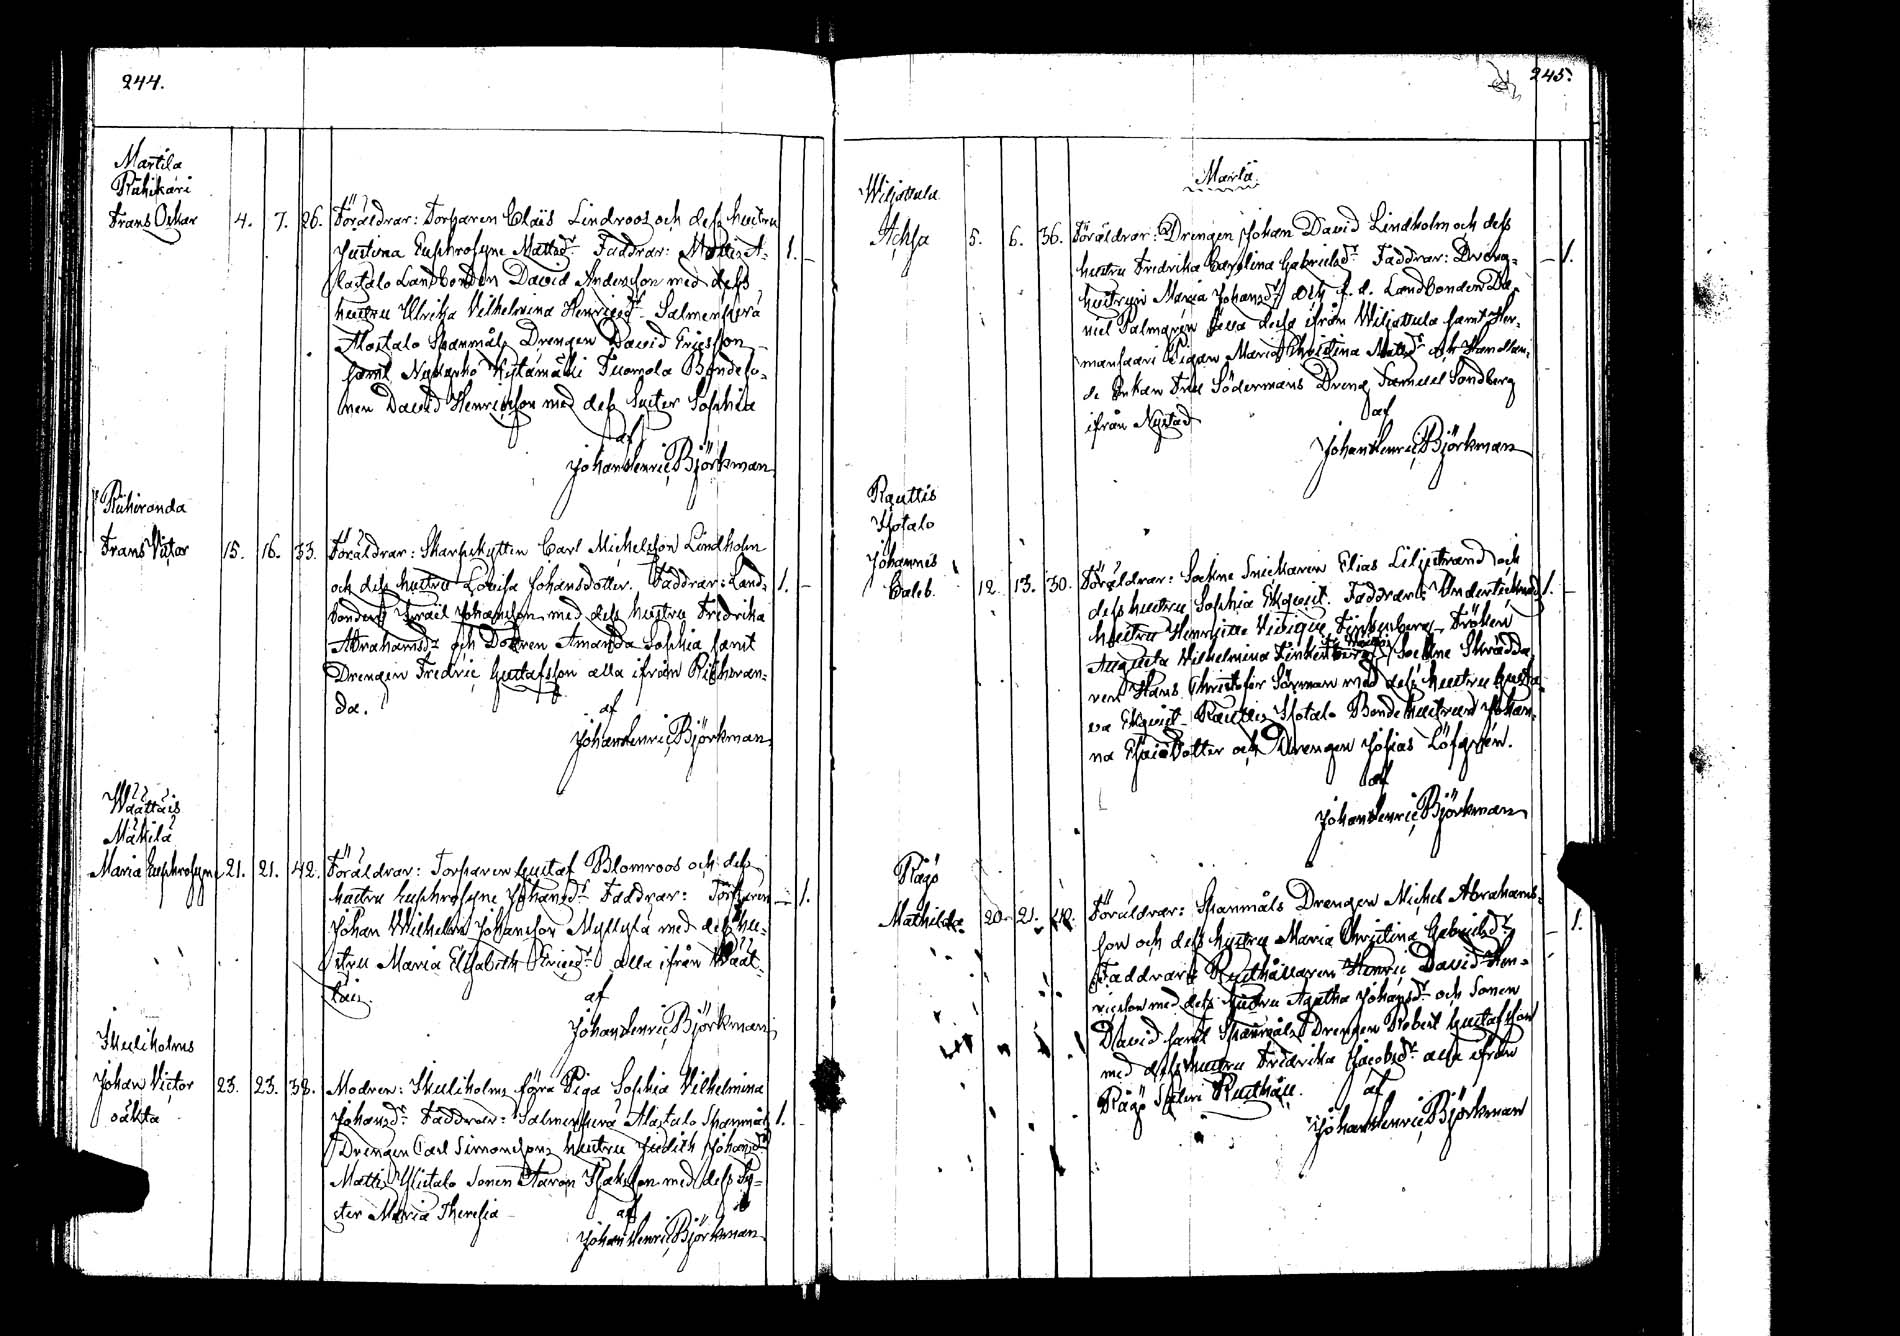 244.
Martila
Riihikäri
Frans Oskar 4. 7. 26. Föräldrar: Torparen Claës Lindroos och dess hustru
Justina Euphrosyne Mattsdr. Faddrar: Mattis A- 1. –
lastalo Landbonden David Andersson med dess
hustru Ulrika Vilhelmina Henricsdr. Salmenperä
Alastalo Spanmåls Drengen David Ericsson
samt Nykyrko Tuomola Bondeso-
nen David Henricsson med dess Syster Sophia
af
Johan Henric Björkman
Riihiranda
Frans Victor 15. 16. 33. Föräldrar: Skarpskytten Carl Michelsson Lindholm
och dess hustru Lovisa Johansdotter. Faddrar: Land- 1. –
bonden Israel Johansson med dess hustru Fredrika
Abrahamsdr och Dottren Amanda Sophia samt
Drengen Fredric Gustafsson alla ifrån Riihiran-
da.
af
Johan Henric Björkman
Waättäis
Mäkilä
Maria Euphrosyne 21. 21. 42. Föräldrar: Torparen Gustaf Blomroos och dess
hustru Euphrosyne Johansdr. Faddrar: Torparen – 1.
Johan Wilhelm Johansson Myllylä med dess hu-
stru Maria Elisabeth Ericsdr. alla ifrån Waät-
täis.
af
Johan Henric Björkman
Skuliholms
Johan Victor 23. 23. 38. Modren: Skuliholms förra Piga Sophia Vilhelmina
oäkta Johansdr. Faddrar: Salmenperä Alastalo Spanmåls 1.
Drengen Carl Simonssons hustru Judith Johansdr
Mattis Ylistalo Sonen Aaron Isaksson med dess Sy-
ster Maria Theresia
af
Johan Henric Björkman
245.
Martii
Wiljattula
Achsa 5. 6. 36. Föräldrar: Drengen Johan David Lindholm och dess
hustru Fredrika Carolina Gabrielsdr. Faddrar: Dreng- – 1.
hustrun Maria Johansdr och f. d. Landbonden Da-
niel Palmgrén alla dessa ifrån Wiljattula samt Her-
mansaari Pigan Maria Christina Mattsdr och Handlan-
de Enkan Fru Södermans Dreng Samuel Sandberg
ifrån Nystad
af
Johan Henric Björkman
Rauttis
Isotalo
Johannes
Caleb. 12. 13. 30. Föräldrar: Sockne Snickaren Elias Liljestrand och
dess hustru Sophia Ekqvist. Faddrar: Undertecknads 1. –
hustru Henriette Vivique Finkenberg, Fröken
Augusta Wilhelmina Finkenberg Sockne Skrädda-
ren Hans Christofer Sörman med dess hustru Gusta-
va Ekqvist Rauttis Isotalo Bonde hustrun Johan-
na Esaiedotter och Drengen Josias Löfgrén.
af
Johan Henric Björkman
Rågö
Mathilda 20. 21. 40. Föräldrar: Spanmåls Drengen Michel Abrahams-
son och dess hustru Maria Christina Gabrielsdr – 1.
Faddrar: Rusthållaren Henric David Hen-
ricsson med dess hustru Agatha Johansdr. och Sonen
David samt Spanmåls Drengen Robert Gustafsson
med dess hustru Fredrika Jacobsdr. alla ifrån
Rågö Säteri Rusthåll.
af
Johan Henric Björkman